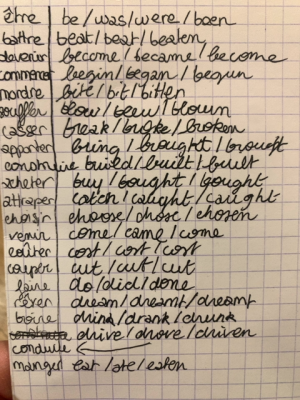 être be/was/were/been
battre beat/beat/beaten
devenir become/became/become
commencer begin/began/begun
mordre bite/bit/bitten
souffler blow/blew/blown
casser break/broke/broken
apporter bring/brought/brought
construire build/built/built
acheter buy/bought/bought
attraper catch/caught/caught
choisir choose/chose/chosen
venir come/came/come
coûter cost/cost/cost
couper cut/cut/cut
faire do/did/done
rêver dream/dreamt/dreamt
boire drink/drank/drunk
drive/drove/driven
conduire
manger eat/ate/eaten